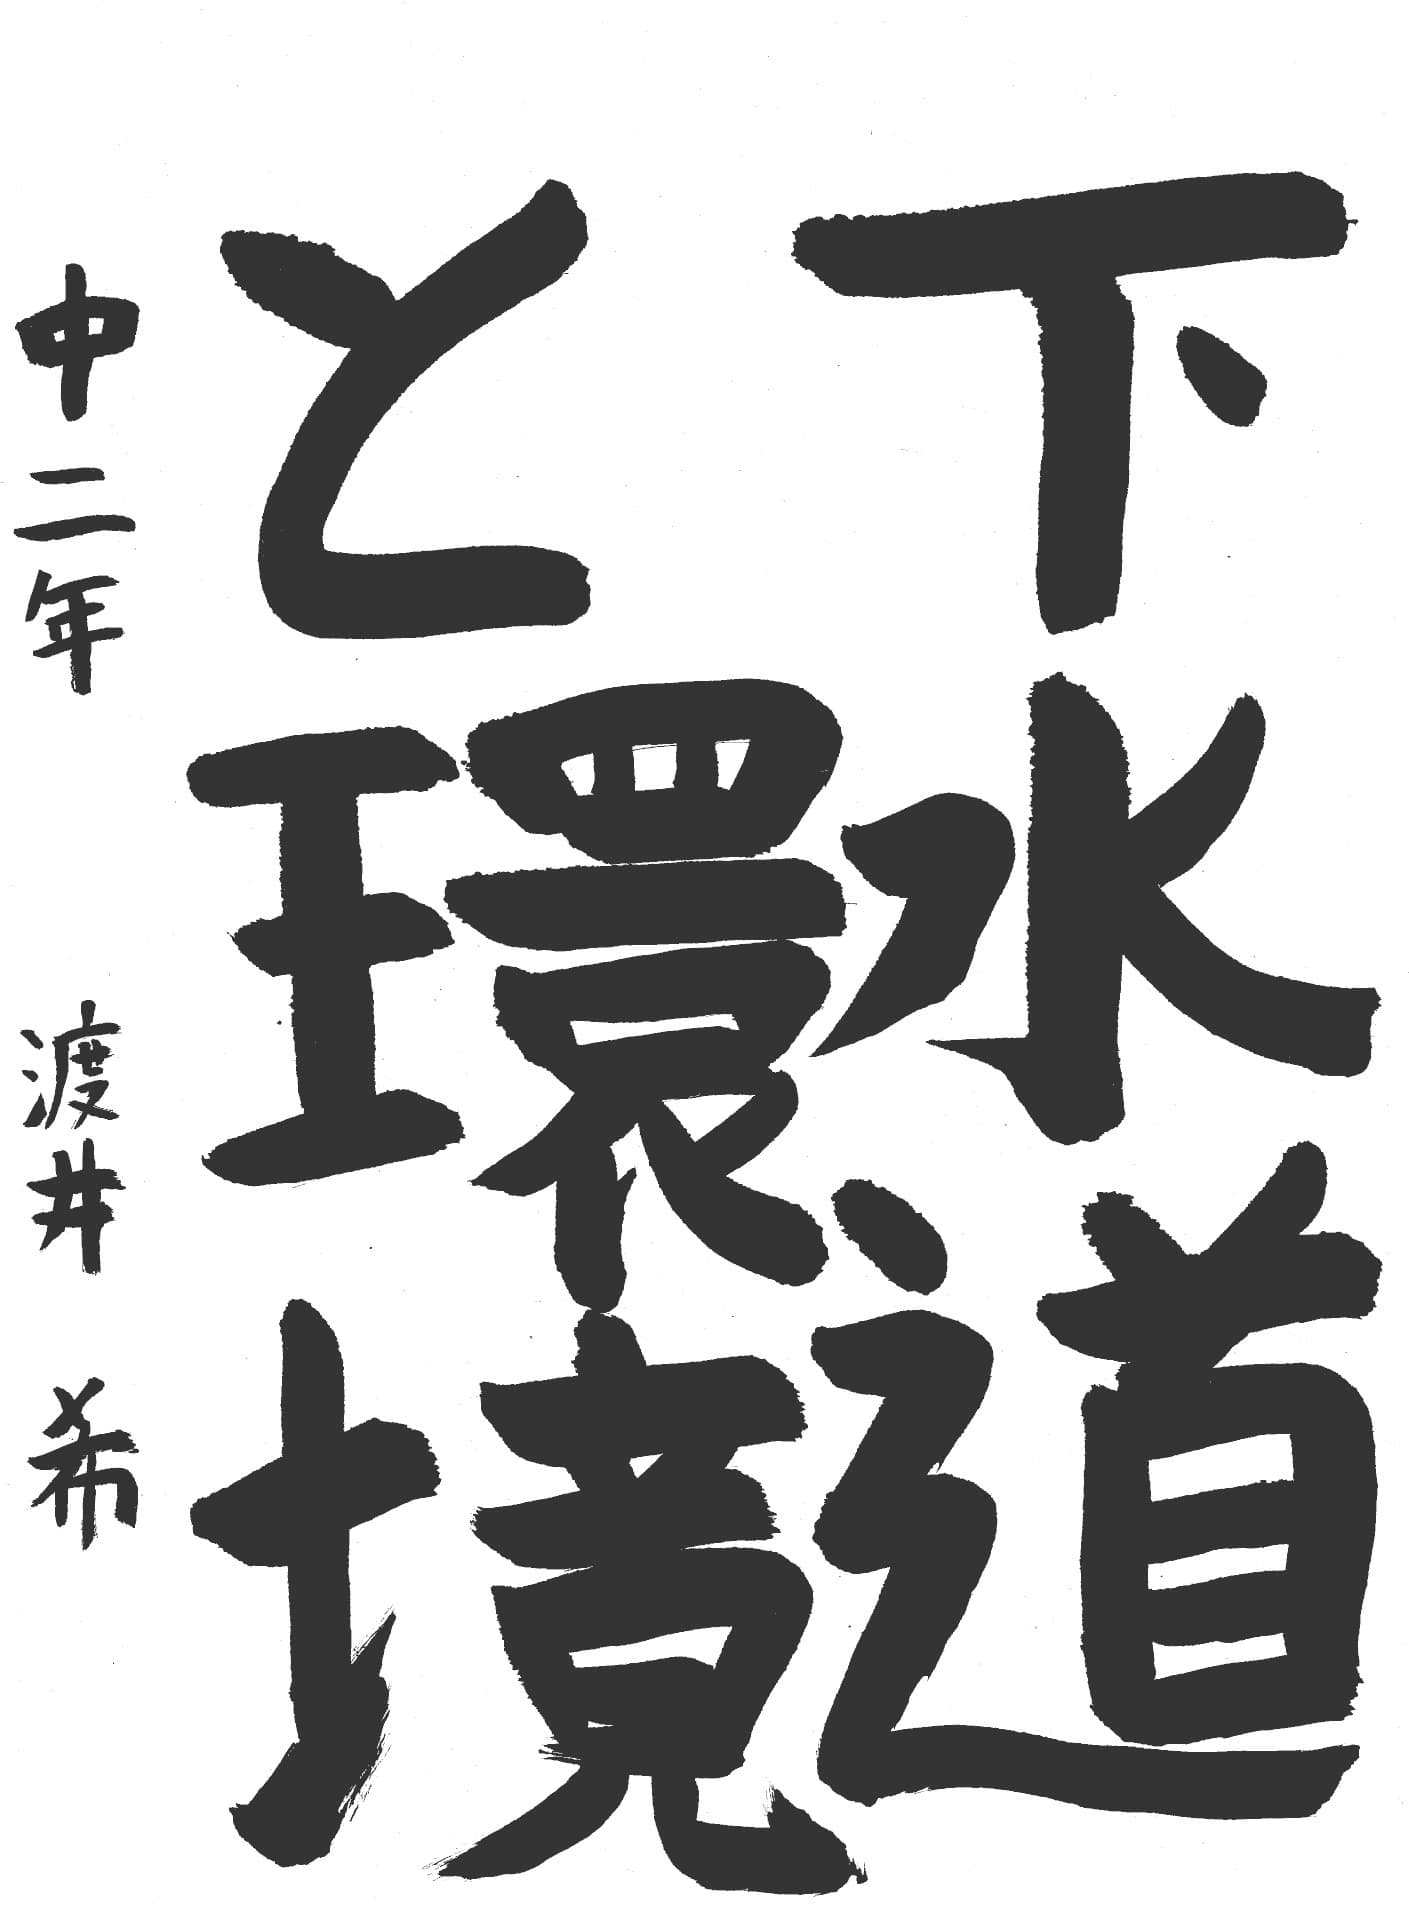 下水道
と環境
中二年 渡井 希